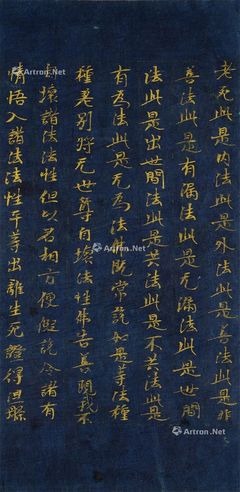 老死此是内法此是外法此是善法此是非
善法此是有漏法此是无漏法此是世間
法此是出世間法此是共法此是不共法此是
有為法此是无為法佛既常說如是等法種
種差別將无世尊自壞法性佛告善現我不
自壞諸法法性但以名相方便假說令諸有
情悟入諸法法性平等出離生死證得涅槃
Artron.Net
Artron.Net
Artron.Net
Artron.Net